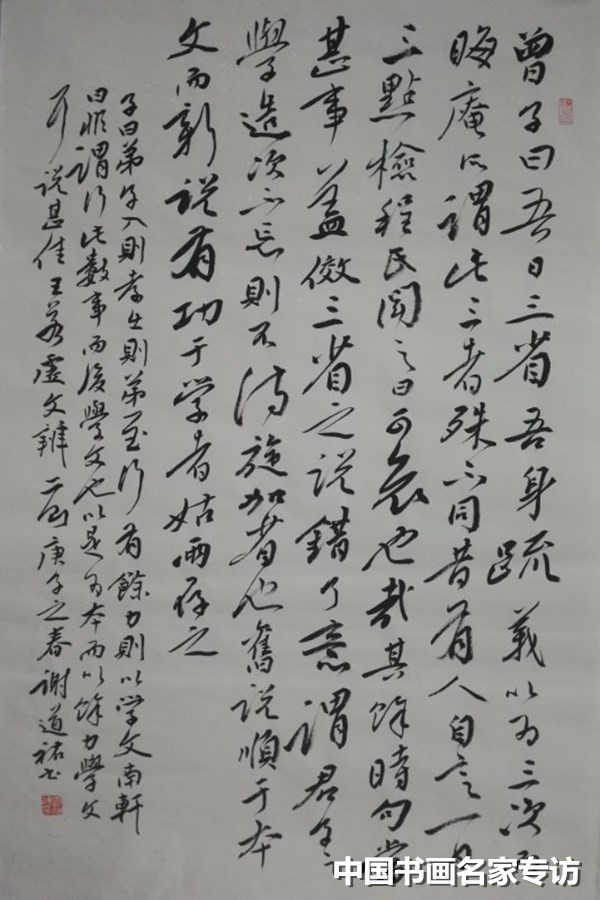 曾子曰吾日三省吾身疏義以为三次
晦庵以謂此三者殊不同昔有人自言一日
三點檢程氏闻之曰可哀也哉其餘時句當
甚事蓋傚三省之说錯了意謂君子
學造次不忘則不待施加者也舊说順于本
文而新说有功于学者姑两存之
子曰弟子入則孝出則弟至行有餘力則以学文南軒
曰非謂行此數事而後學文也以是为本而以餘力學文
说甚佳王若虚文辨二则庚子之春谢道祐书
中国书画名家专访